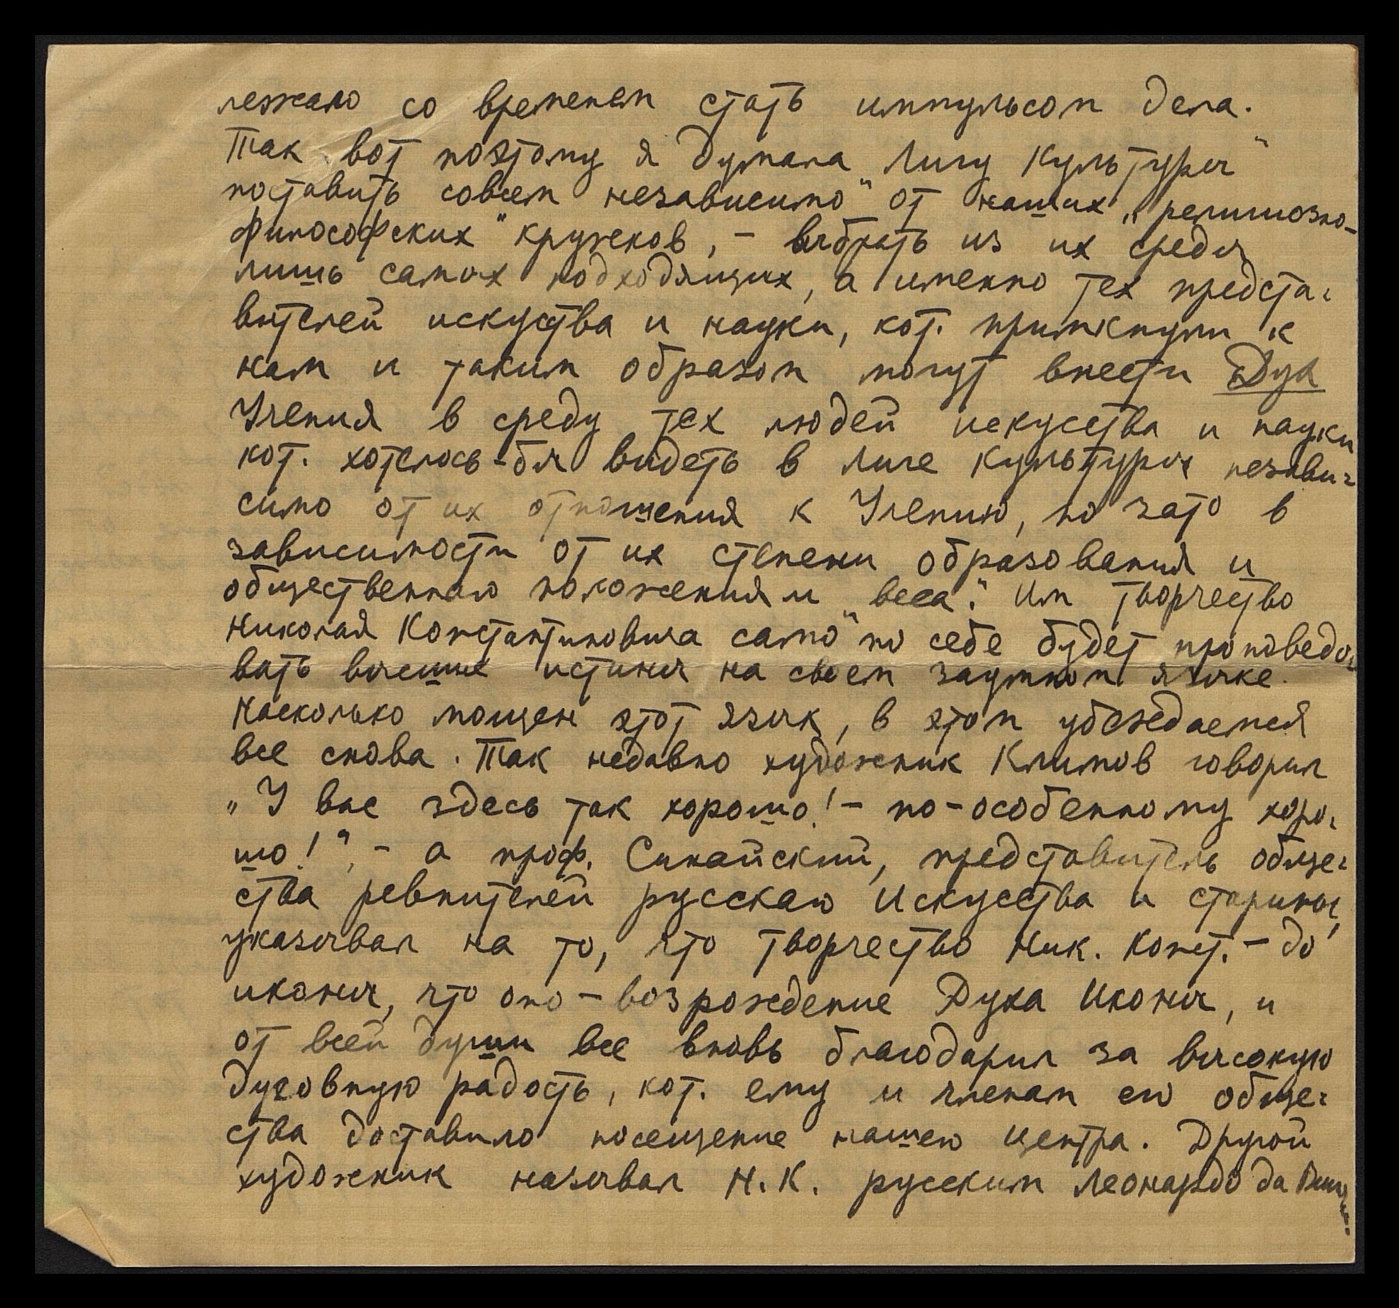 лежало со временем стать импульсом дела.
Так вот поэтому я думала „Лигу Культуры“
поставить совсем независимо от наших „религиозно-
философских“ кружков, – выбрать из их среды
лишь самых подходящих, а именно тех предста-
вителей искусства и науки, кот. примкнули к
нам и таким образом могут внести Дух
Учения в среду тех людей искусства и науки
кот. хотелось-бы видеть в Лиге Культуры незави-
симо от их отношения к Учению, но зато в
зависимости от их степени образования и
общественного положения и „веса“. Им творчество
Николая Константиновича само по себе будет проповедо-
вать высшие истины на своем заумном языке.
Насколько мощен этот язык, в этом убеждаемся
все снова. Так недавно художник Климов говорил
„У вас здесь так хорошо! – по-особенному хоро-
шо!“, – а проф. Синайский, представитель обще-
ства ревнителей русского Искусства и старины,
указывал на то, что творчество Ник. Конст. – до
иконы, что оно – возрождение Духа Иконы, и
от всей души все вновь благодарил за высокую
духовную радость, кот. ему и членам его обще-
ства доставило посещение нашего центра. Другой
художник называл Н.К. русским Леонардо да Винчи.